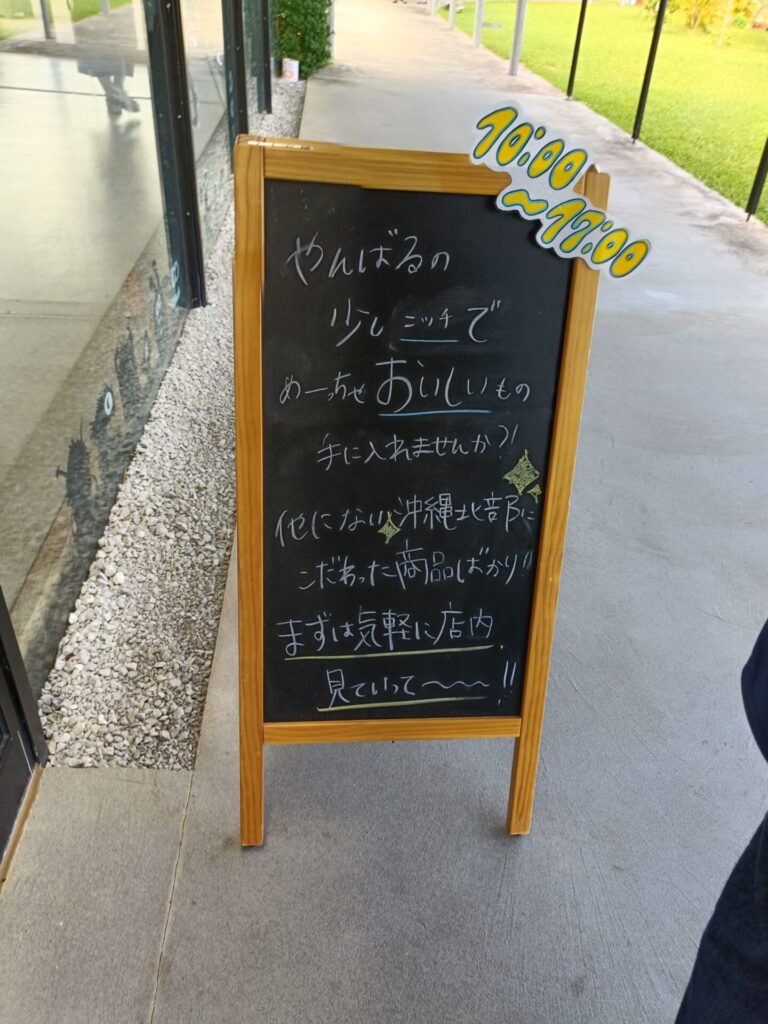 10:00
～17:00
やんばるの
少しニッチで
めーっちゃおいしいもの
手に入れませんか?!
他にない沖縄北部に
こだわった商品ばかり!!
まずは気軽に店内
見ていって〜〜〜!!